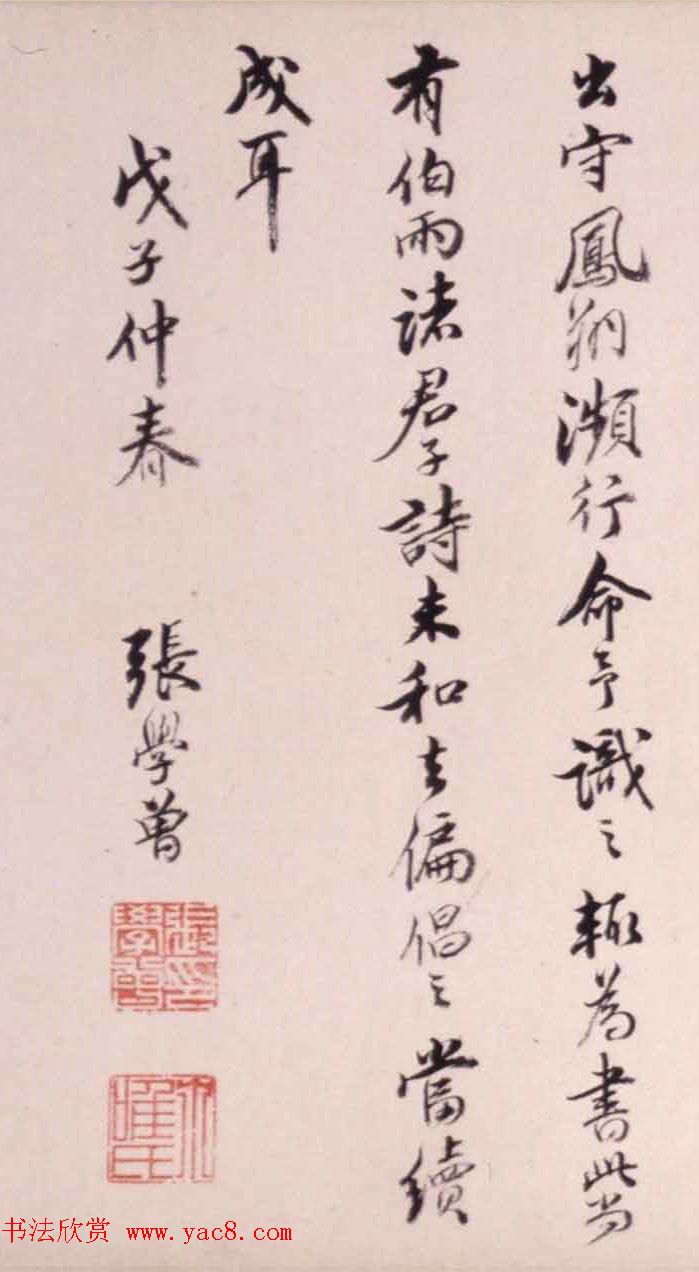 出守鳳翔瀕行命予識之輙為書此尚
有伯雨諸君子詩未和偏倡之當續
成耳
戊子仲春 張學曾
張學曾印
尒唯氏
书法欣赏 www.yac8.com